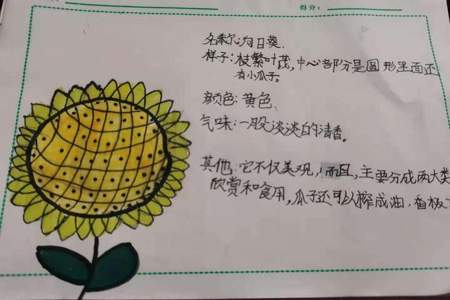 得分:
名称:向日葵.
样子:枝繁叶茂,中心部分是圆形里面还
有小瓜子.
颜色:黄色.
气味:一股淡淡的清香。
其他,它不仅美观,而且,主要分成两大类
欣赏和食用,瓜子还可以榨成油,